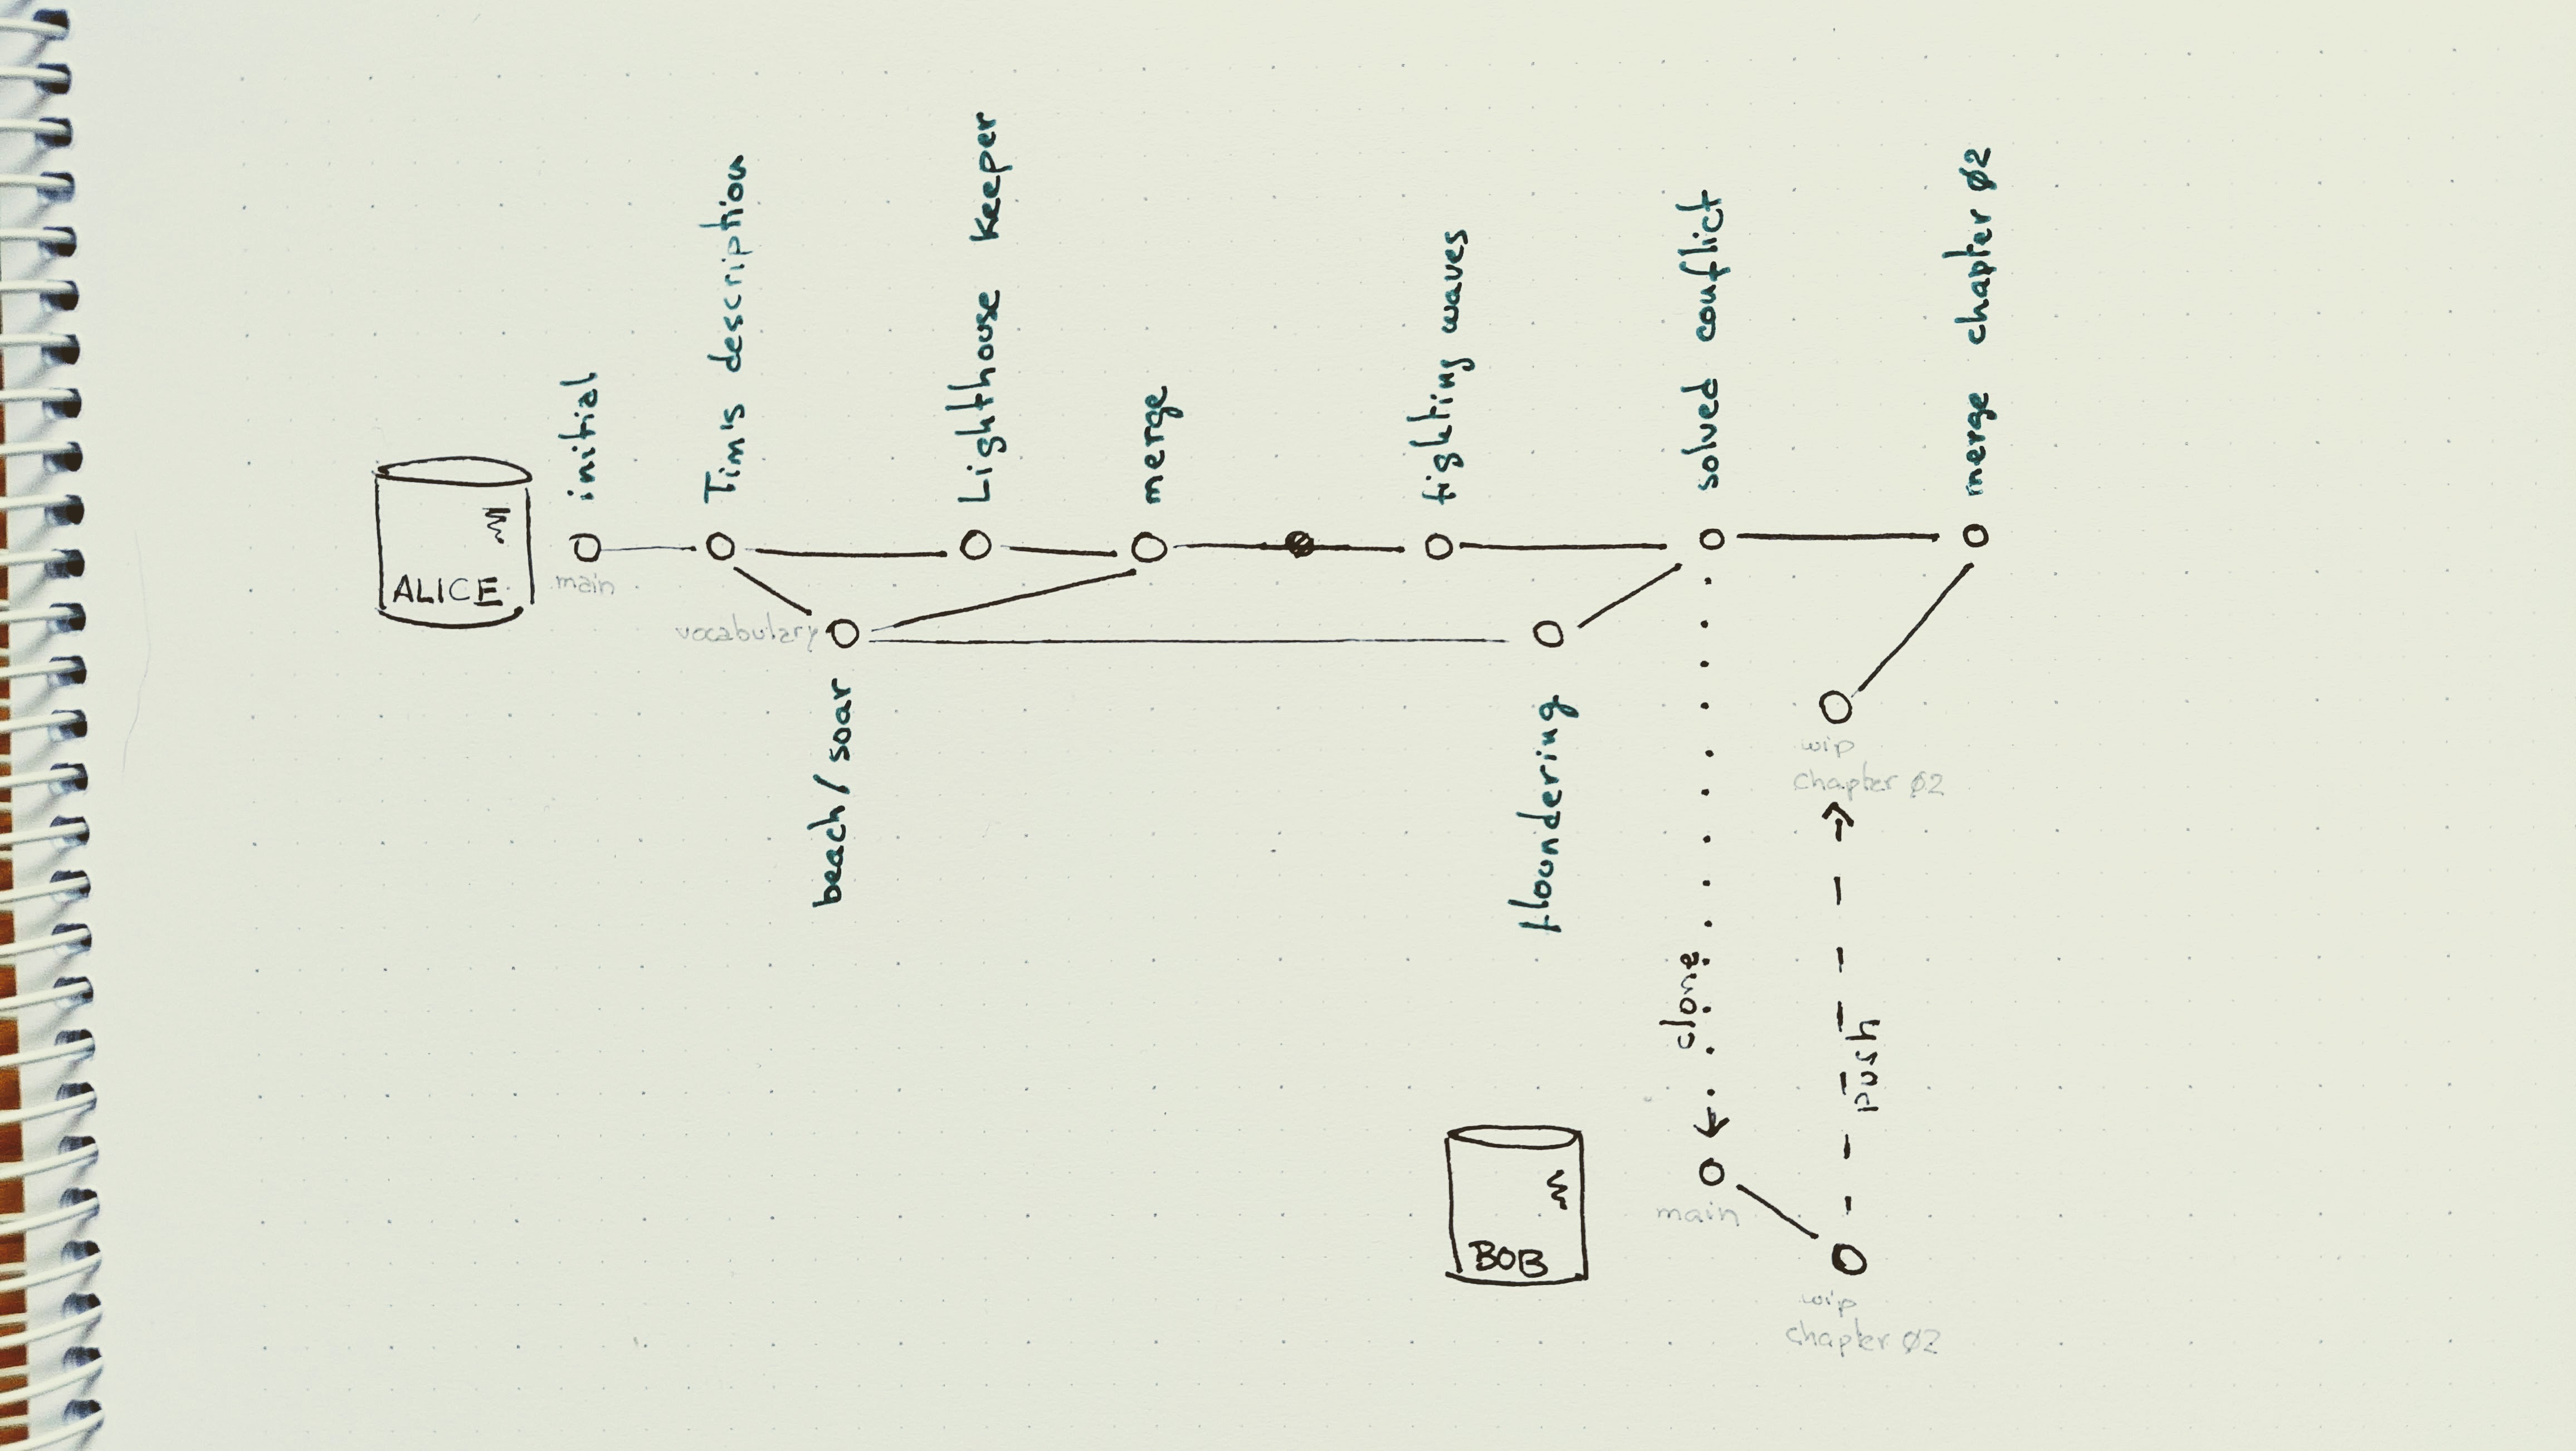 initial
Tim's description
Lighthouse keeper
merge
fighting waves
solved conflict
merge chapter 02
ALICE
main
vocabulary
beach/soar
floundering
wip
chapter 02
clone
push
BOB
main
wip
chapter 02